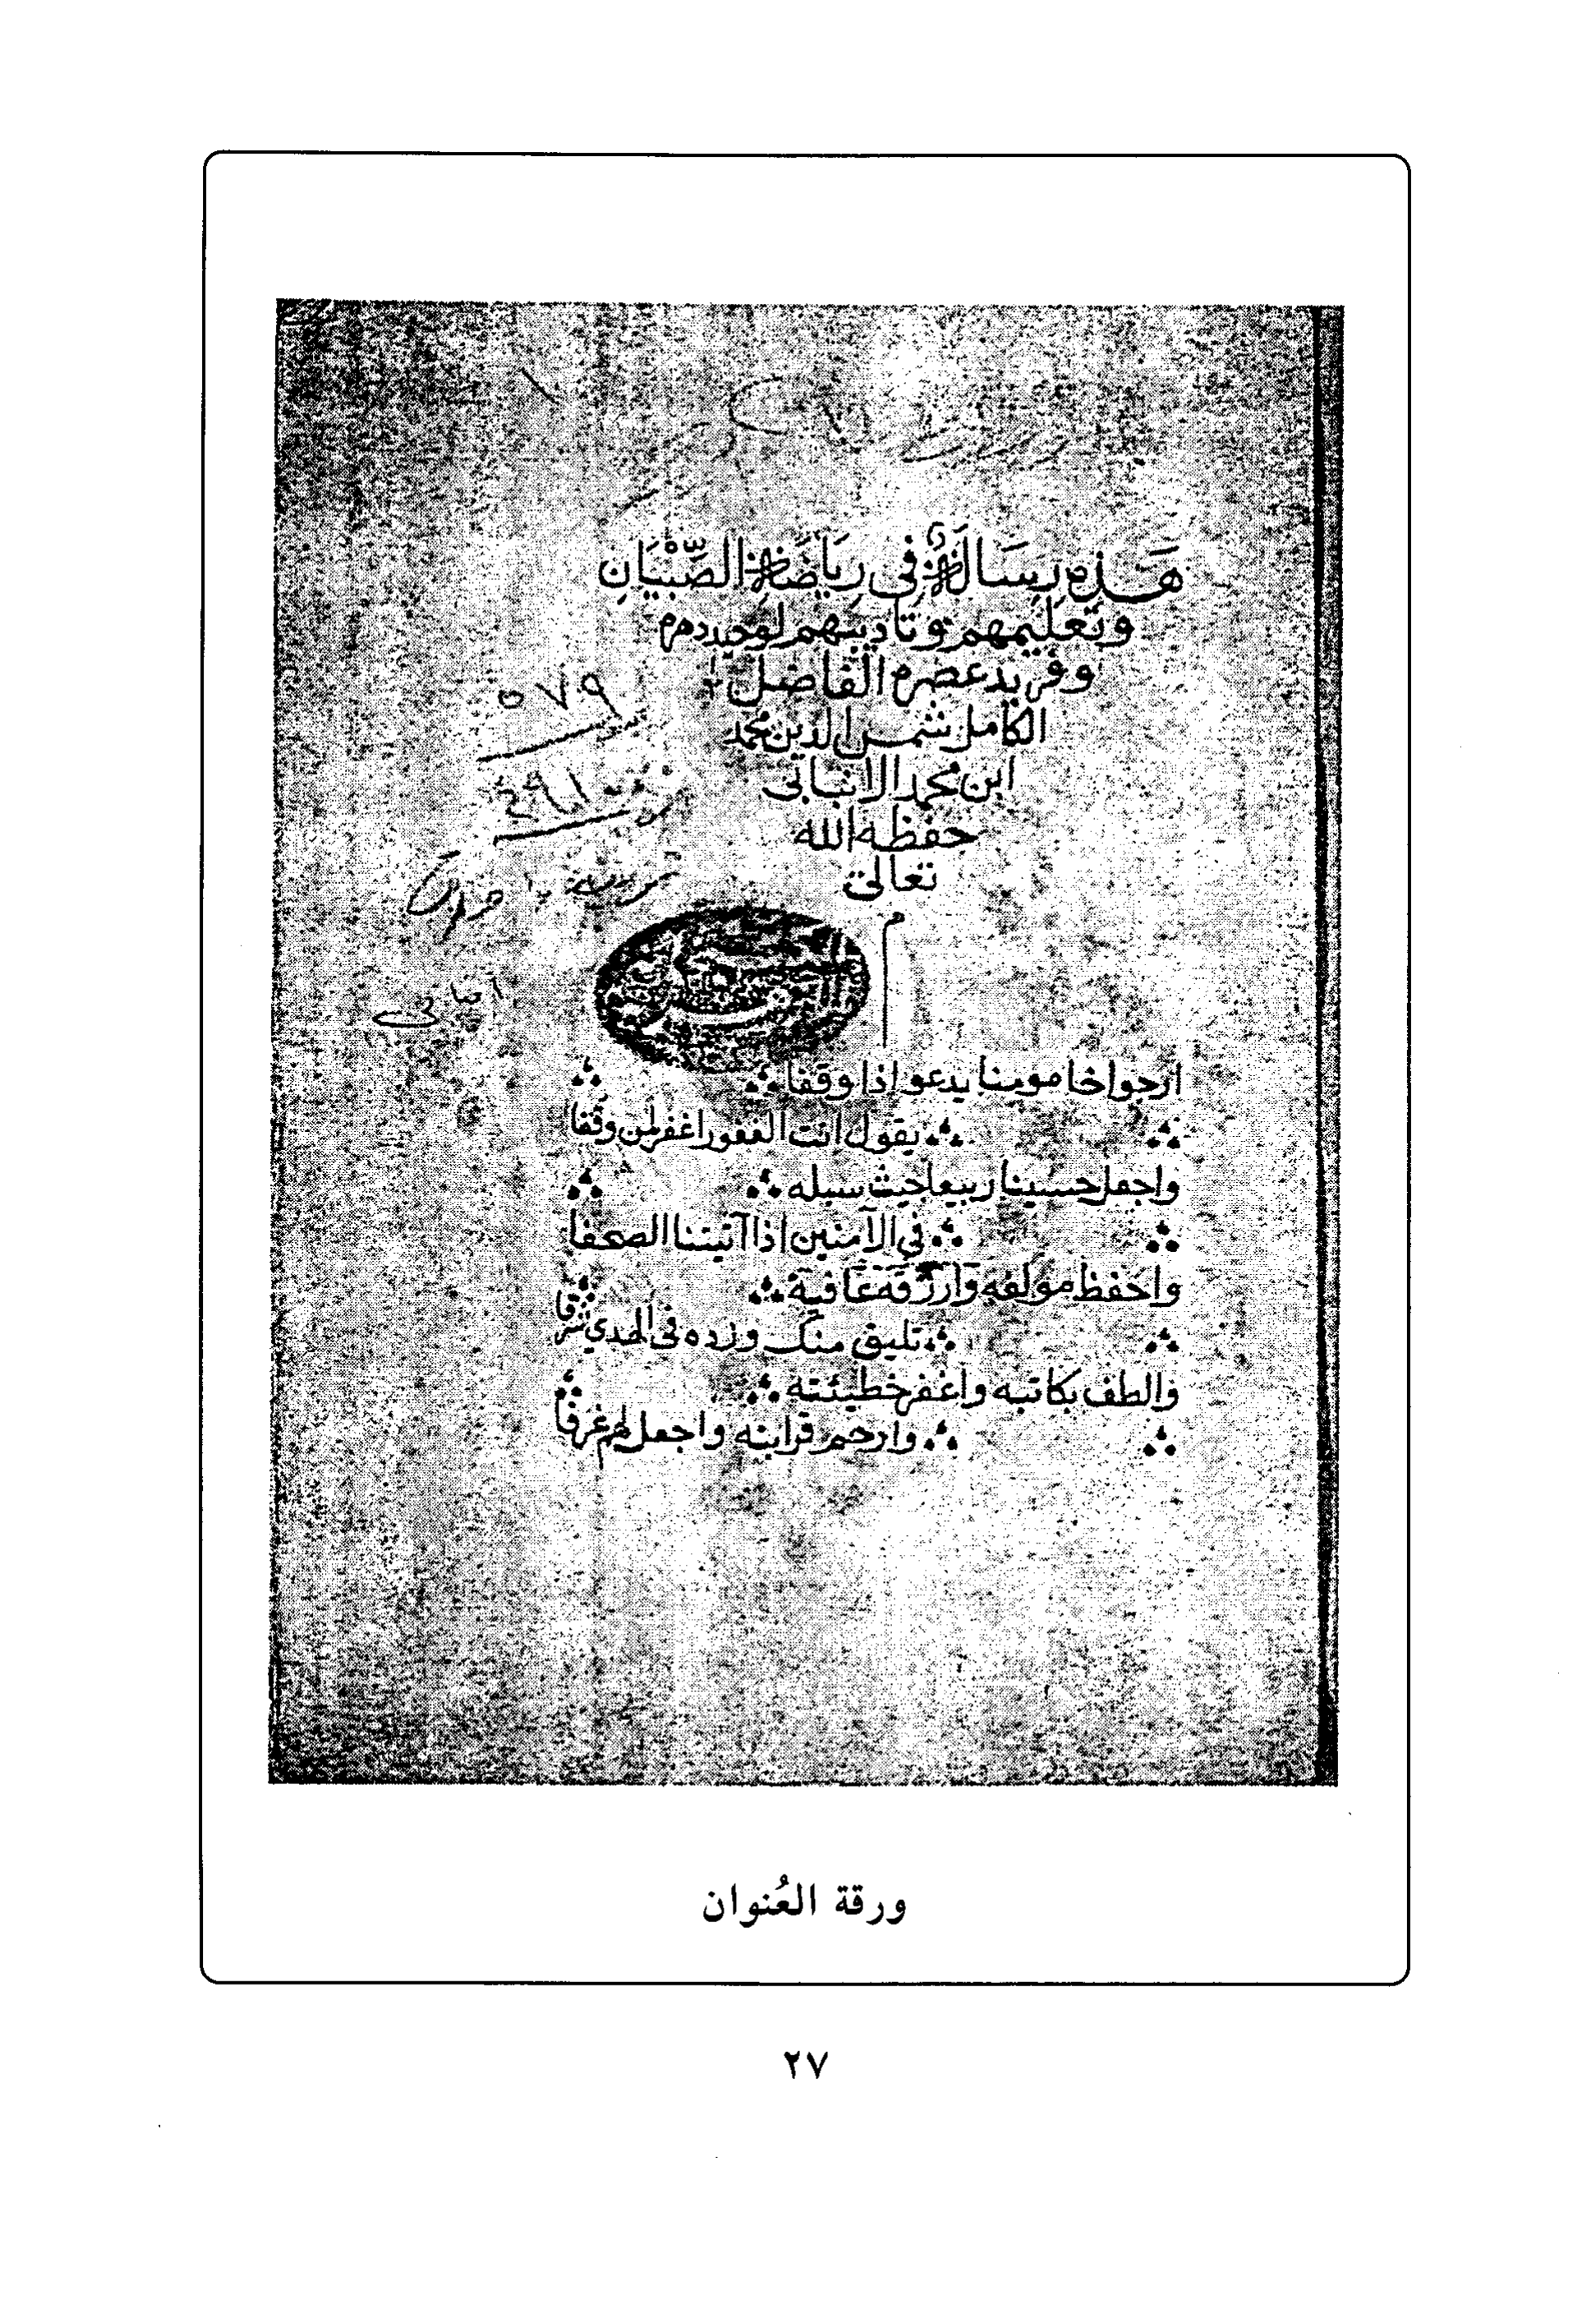 هَذِهِ رِسَالَةٌ فِى رِيَاضَةِ الصِّبْيَانِ
وَتَعْلِيمِهِم وَتَادِيبِهِم لوحيد دهره
وفريد عصره الفاضل
الكامل شمس الدين محمد
ابن محمد الانبابى
حفظه الله
تعالى
٥٧٩
٤٩١
انبابى
ارجو اخا مومنا يدعو اذا وقفا
يقول انت الغفور اغفر لمن وقفا
واجعل حسينا ربيعا حيث سبله
في الآمنين اذا آتيتنا الصحفا
واحفظ مولفه وَارْزُقهُ عَافيَة
تليق منك وزده فى الهدي شرفا
والطف بكاتبه واغفر خطيئته
وارحم قرابته واجعل لهم غرفا
ورقة العُنوان
٢٧